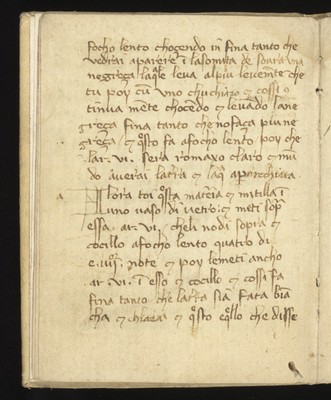 focho lento chogendo in fina tanto che
vedrai aparere ī la somita de sopra una
negreça laq̄le leva alpiu levem̄te che
tu poy cū uno chuchiaro ⁊ cossi 9
tinua mēte chocēdo ⁊ levādo la ne
greça fina tanto che nō faça piu ne
greça ⁊ q̄sto fa a focho lento poy che
lar. vi. sera romaxo claro ⁊ mū
do averai latra ⁊ laq̄
Allora toi q̄sta materia ⁊ mitila ī
uno vaso di vetro ⁊ meti sopra
essa .ar. vi. che li nodi sopra ⁊
cocillo a focho lento quatro di
e .iiij. note ⁊ poy le meti ancho
.ar. vi. ī esso ⁊ cocillo ⁊ cossi fa
fina tanto che latrra sia fata biā
cha ⁊ chiara ⁊ q̄sto e q̄llo che disse